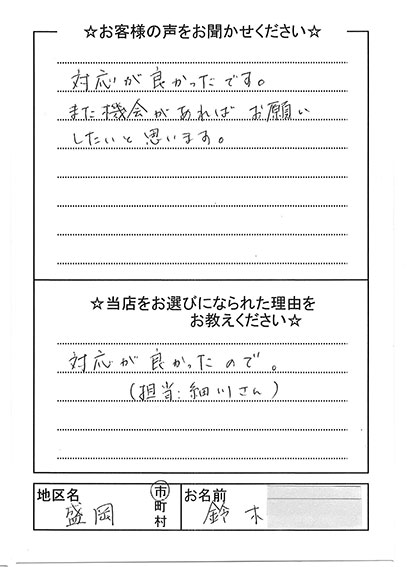 ☆お客様の声をお聞かせください☆
対応が良かったです。
また機会があれば お願い
したいと思います。
☆当店をお選びになられた理由を
お教えください☆
対応が良かったので。
(担当:細川さん)
地区名
盛岡
市
町
村
お名前
鈴木